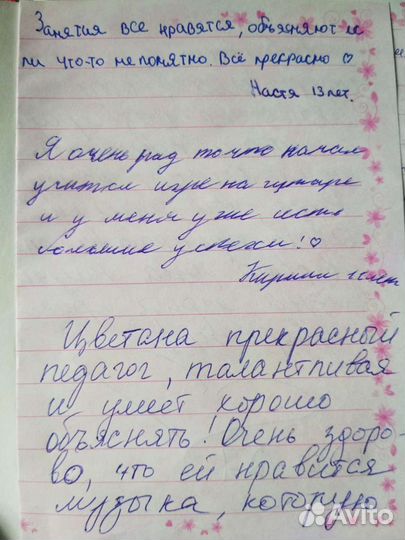 Занятия все нравятся, объясняют ес
ли что-то не понятно. Всё прекрасно ♡
Настя 13 лет.
Я очень рад то что начал
учится игре на гитаре
и у меня уже есть
большие успехи! ♡
Кирилл лет
Цветана прекрасный
педагог, талантливая
и умеет хорошо
объяснять! Очень здоро-
во, что ей нравится
музыка, которую
Avito